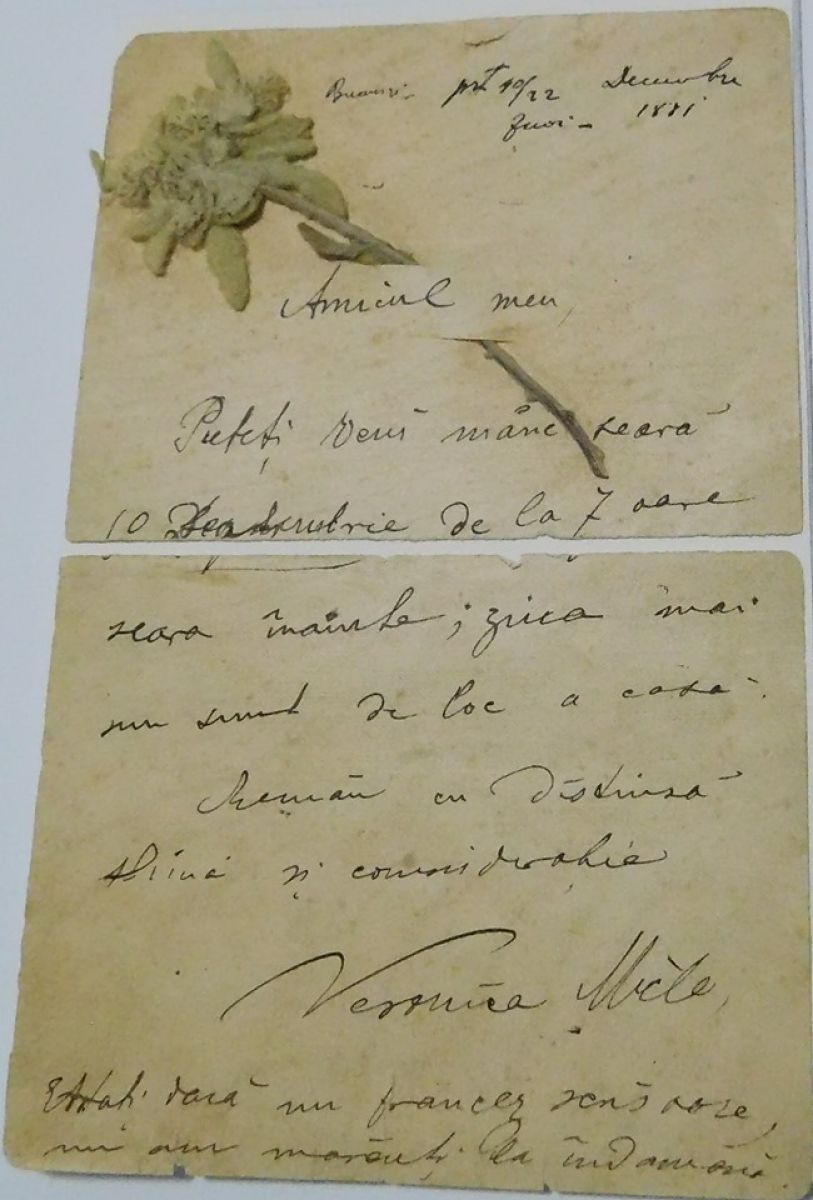 10/22 Decembre
Joui - 1881
Amicul meu,
Puteți veni mâne seară
10 de la 7 oare
seara înainte; ziua mai
nu sunt de loc a casă.
Remân cu distinsă
stimă și considerație
Veronica Micle
dacă nu francez scrisoare,
nu am mărunți la îndamână.